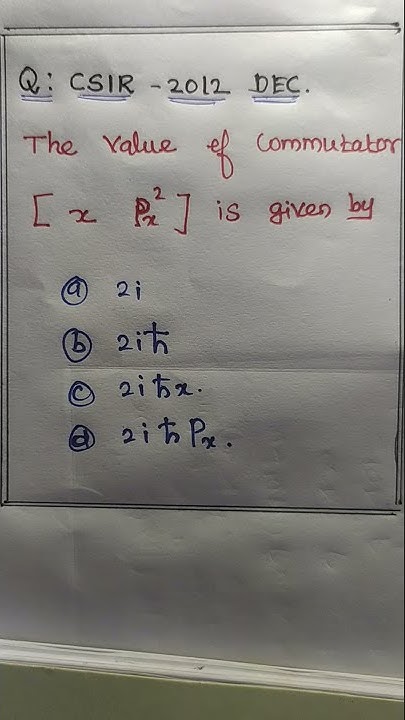 Q: CSIR - 2012 DEC.
The value of Commutator
[ x Pₓ² ] is given by
ⓐ 2i
ⓑ 2iħ
ⓒ 2iħx.
ⓓ 2iħPₓ.